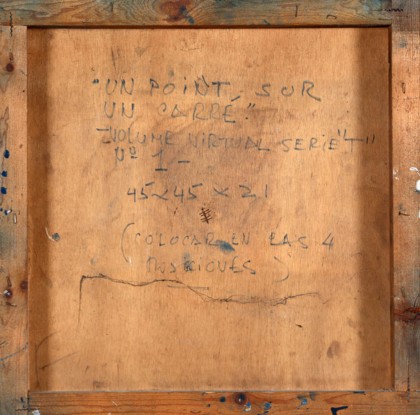 "UN POINT, SUR
UN CARRÉ."
VOLUME VIRTUAL SERIE "T"
Nº 1 -
45 x 45 x 21
(COLOCAR EN LAS 4
)